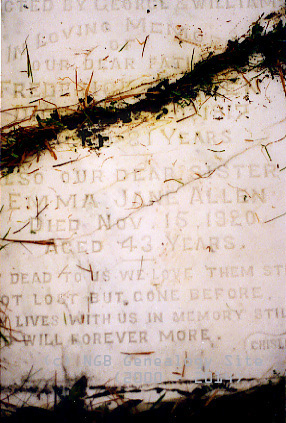 CTED BY GEORGE & WILLIAM
IN LOVING MEMORY
OF
OUR DEAR FATHER
FREDERICK
YEARS
ALSO OUR DEAR SISTER
EMMA JANE ALLEN
DIED NOV. 15 1920
AGED 43 YEARS.
DEAD TO US WE LOVE THEM STI
OT LOST BUT GONE BEFORE
LIVES WITH US IN MEMORY STIL
WILL FOREVER MORE
CHISL
NGB Genealogy Site